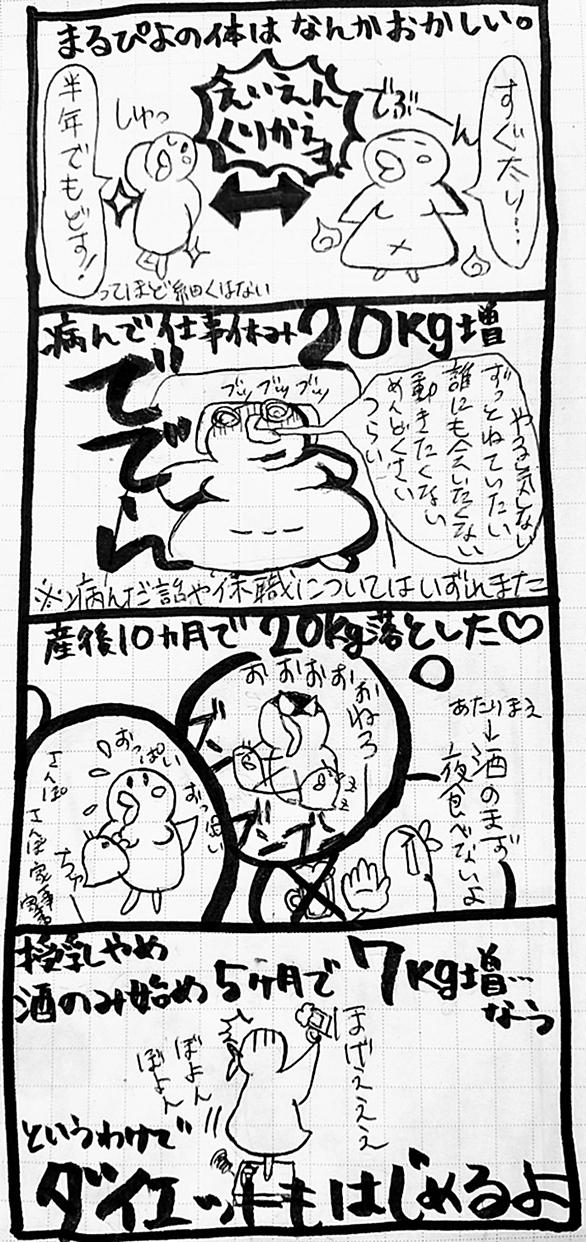 まるぴよの体は なんかおかしい。
すぐ太り…
でぶーん
えいえん
くりかえし
しゅっ
半年でもどす!
ってほど細くはない
病んで仕事休み20kg増
ででーん
ブツブツブツ
やる気しない
ずっとねていたい
誰にも会いたくない
動きたくない
めんどくさい
つらい
※病んだ話や休職についてはいずれまた
産後10カ月で20kg落とした♡
あたりまえ
酒のまず
夜食べないよ
おおおお
おねろー
ブンブン
zzz
おっぱい
おっぱい
さんぽ
さんぽ
家事
家事
授乳やめ
酒のみ始め5ヶ月で7kg増…
なう
ほげえええ
ぼよん
ぼよん
というわけで
ダイエットもはじめるよ